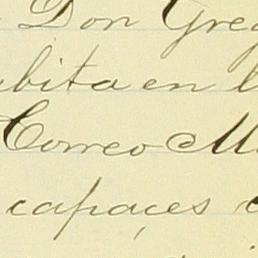 Don Greg
bita en l
Correo M
capaçes